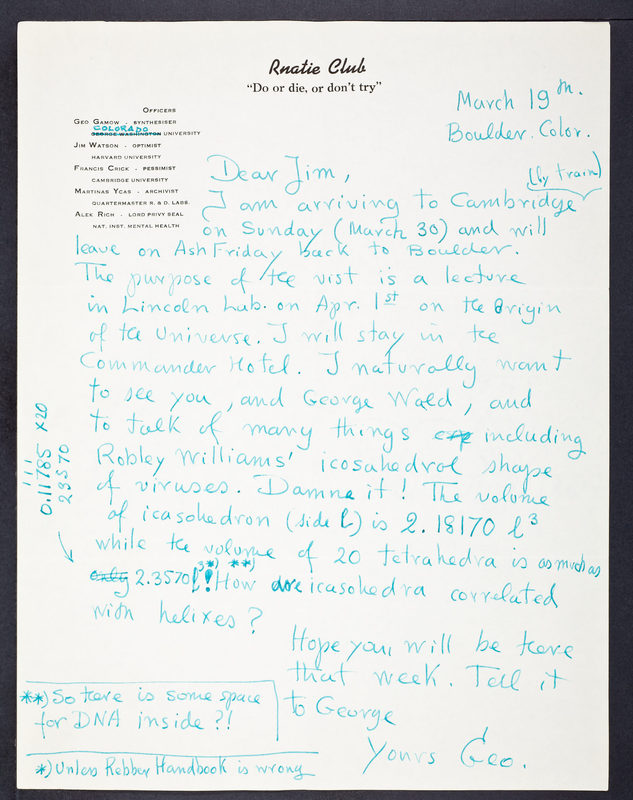 Rnatie Club
"Do or die, or don't try"
Officers
Geo Gamow - Synthesiser
COLORADO
George Washington University
Jim Watson - Optimist
Harvard University
Francis Crick - Pessimist
Cambridge University
Martinas Ycas - Archivist
Quartermaster R. & D. Labs.
Alek Rich - Lord Privy Seal
Nat. Inst. Mental Health
March 19th.
Boulder. Color.
Dear Jim,
(by train)
I am arriving to Cambridge
on Sunday (March 30) and will
leave on Ash Friday back to Boulder.
The purpose of the vist is a lecture
in Lincoln Lab. on Apr. 1st on the Origin
of the Universe. I will stay in the
Commander Hotel. I naturally want
to see you, and George Wald, and
to talk of many things including
Robley Williams' icosahedral shape
of viruses. Damne it! The volume
of icasohedron (side l) is 2.18170 l³
while the volume of 20 tetrahedra is as much as
only 2.3570 l³*) **)! How are icasohedra correlated
with helixes?
0.11785 x20
111
23570
Hope you will be there
that week. Tell it
to George
Yours Geo.
**) So there is some space
for DNA inside?!
*) Unless Rebber Handbook is wrong